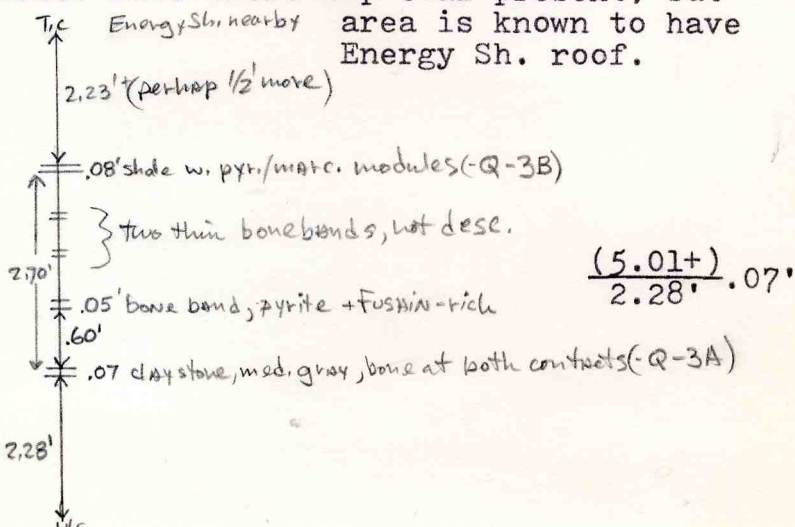 area is known to have
Energy Sh. roof.
T.C Energy Sh. nearby
2.23'+ (perhap 1/2' more)
.08' shale w. pyr./marc. modules (-Q-3B)
} two thin bonebands, not desc.
2.70'
.05' bone band, pyrite + Fusain-rich
.60'
.07 claystone, med. gray, bone at both contacts (-Q-3A)
2.28'
(5.01+)
2.28' .07'